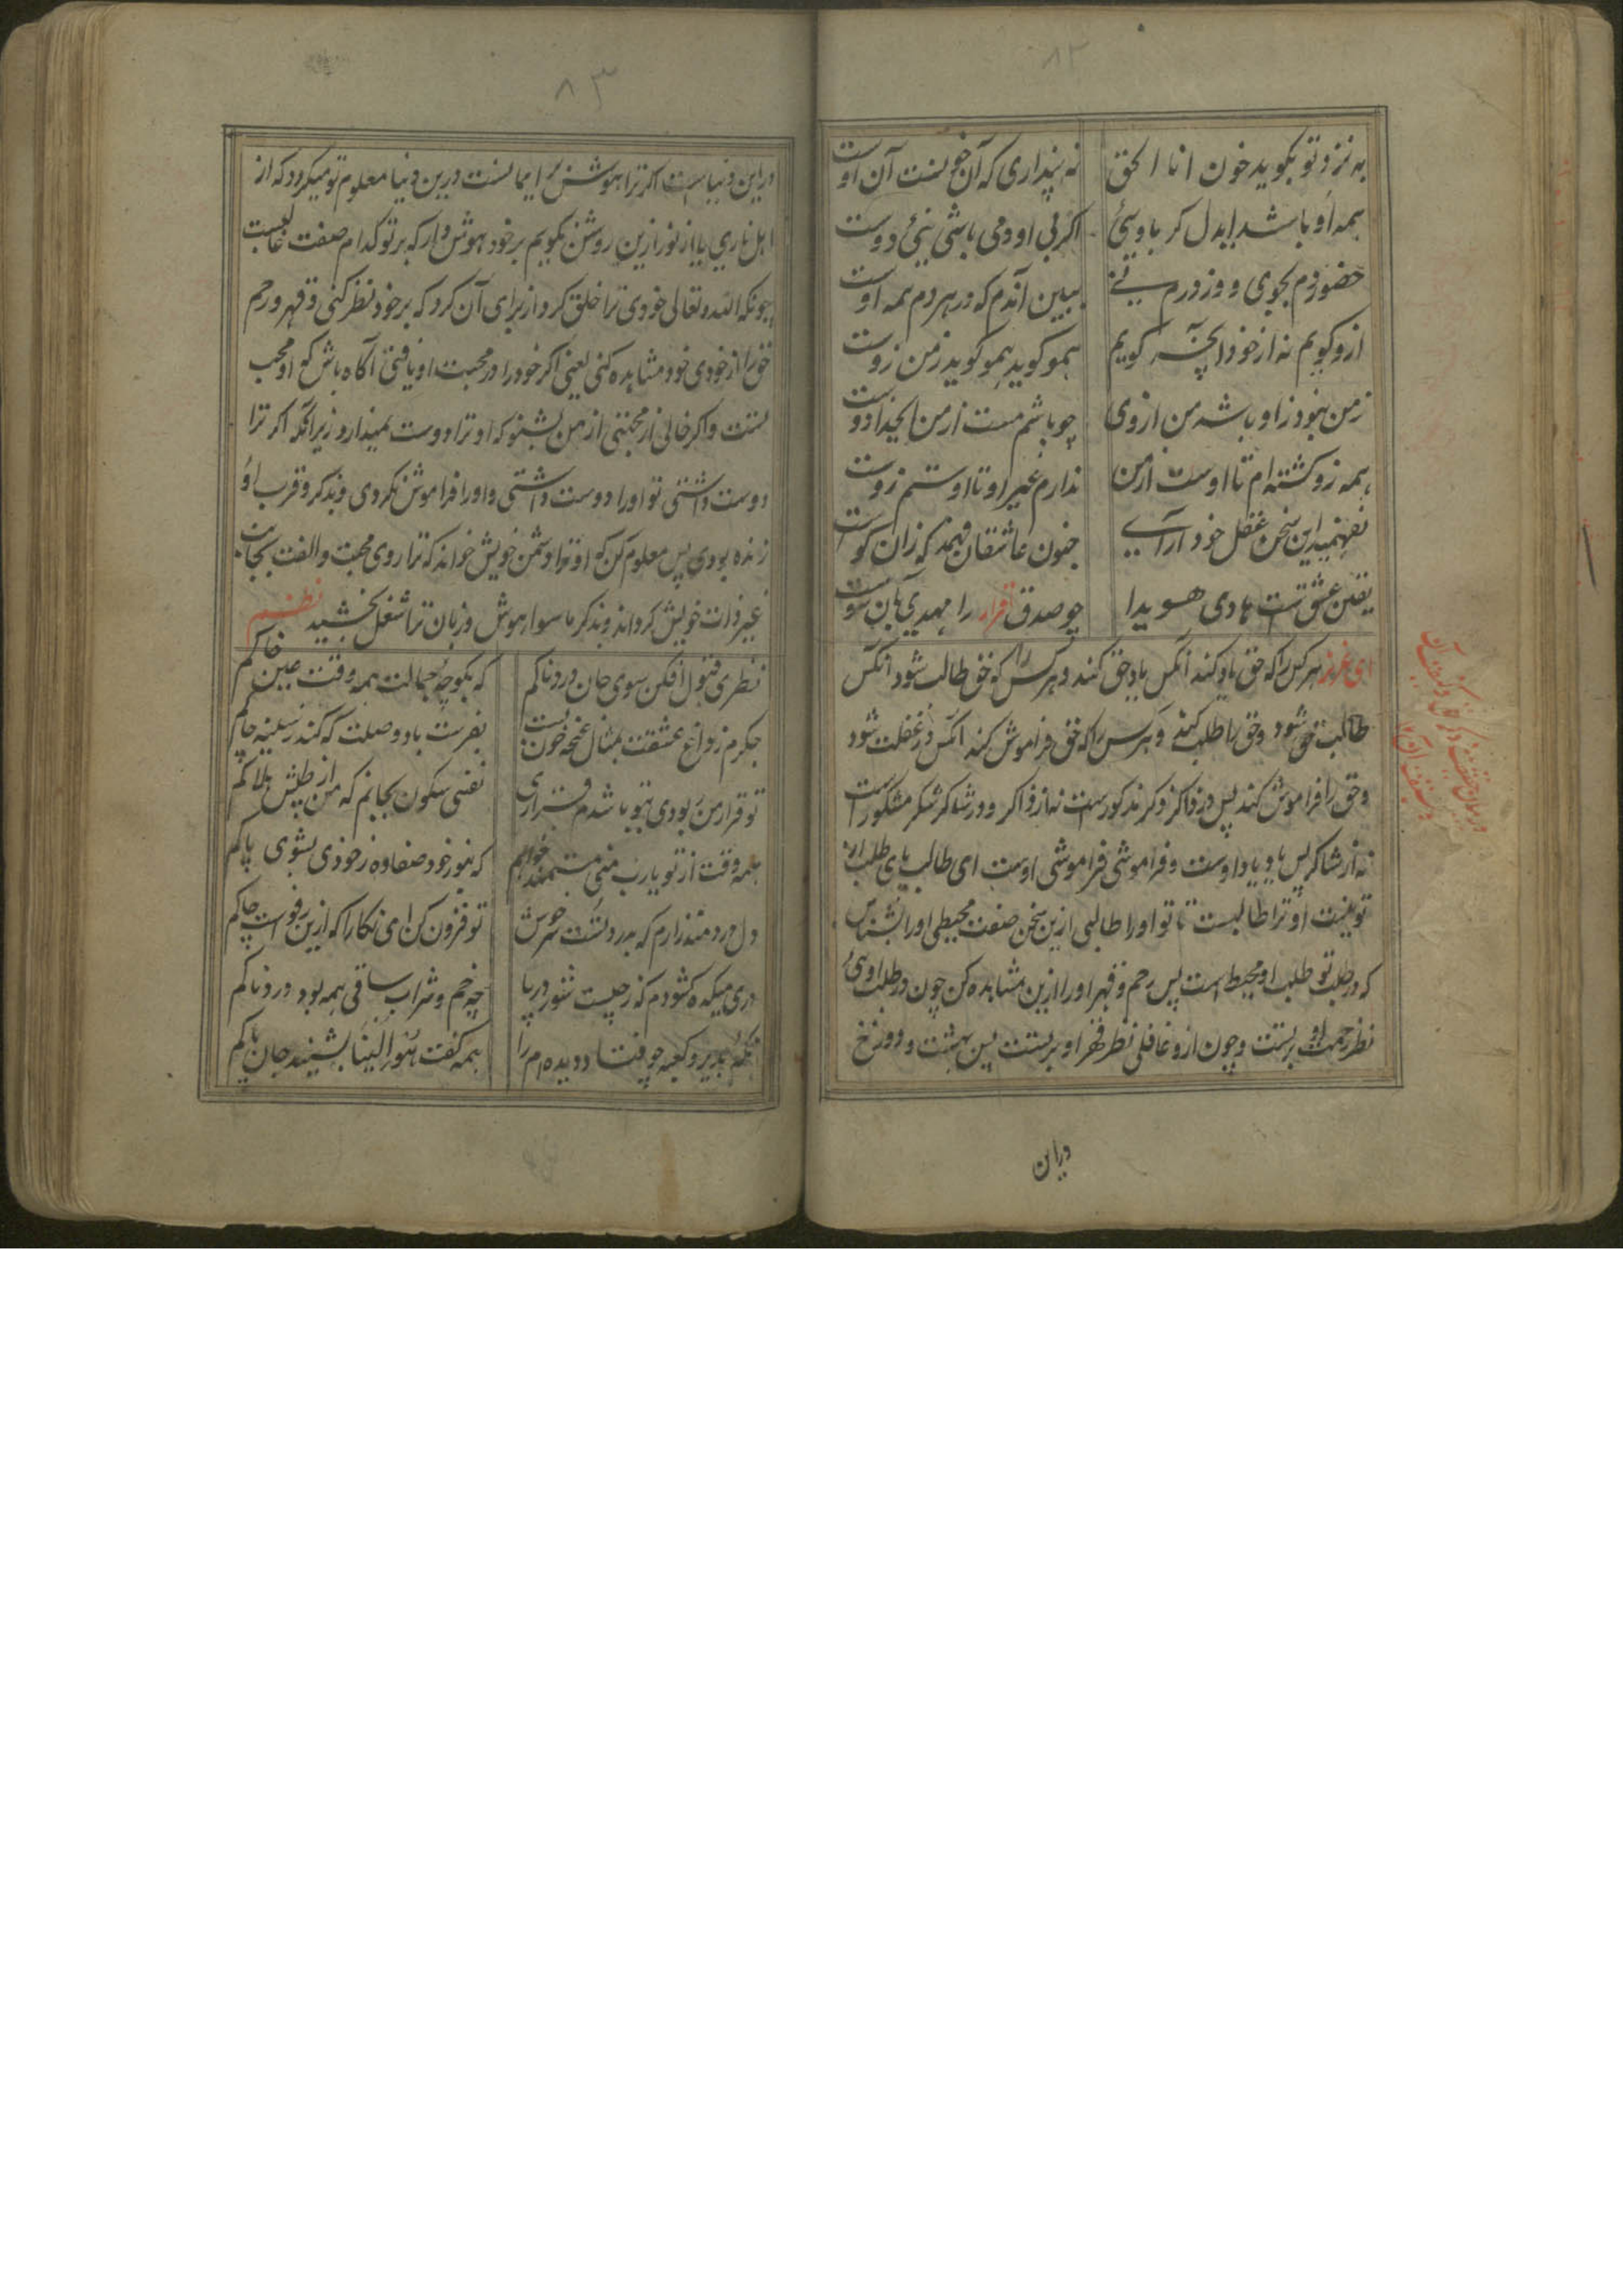 ۸۲
به نزد تو بگوید خون انا الحق نه پنداری که آن خونست آن اوست
همه او باشد ایدل گر باویی اگر بی او دمی باشی نیی دوست
حضور دم بجوی و وز ورم نے ببین آندم که در هر دم همه اوست
ازو گویم نه از خود آنچه گویم همو گوید همو گوید ز من زوست
ز من نبود ز او باشد من از وی چو باشم مست از من ایخدا دوست
همه زو گشته ام تا اوست از من ندارم غیر او تا اوستم زوست
نفهمید این سخن عقل خود آرای جنون عاشقان فهمد که زان کوست
یقین عشقست هادی هویدا چو صدق اقرار را مهدی بآن سوست
ای عزیز هر کس را که حق یاد کند آنکس یاد حق کند و هر کس را که حق طالب شود آنکس
طالب حق شود و حق را طلب کند و هر کس را که حق فراموش کند آنکس در غفلت شود
و حق را فراموش کند پس در ذاکر ذکر مذکورست نه از ذاکر و در شاکر شکر مشکور است
نه از شاکر پس یاد یاد اوست و فراموشی فراموشی اوست ای طالب یای طلب از
تو نیست او ترا طالبست تا تو او را طالبی ازین سخن صفت محیطی او را بشناس
که در طلب تو طلب او محیط است پس رحم و قهر او را ازین مشاهده کن چون در طلب اویی
نظر رحمت او برتست و چون ازو غافلی نظر قهر او برتست پس بهشت و دوزخ
در این
۸۳
در این دنیاست اگر ترا هوش ایمانست درین دنیا معلوم تو میگردد که از
اهل ناری یا از نور ازین روشن بگویم بر خود هوش دار که بر تو کدام صفت غالبست
چونکه الله تعالی خودی ترا خلق کرد از برای آن کرد که بر خود نظر کنی و قهر و رحم
حق را از خودی خود مشاهده کنی یعنی اگر خود را در محبت او یافتی آگاه باش که او محب
تست و اگر خالی از محبتی از من بشنو که او ترا دوست نمیدارد زیرا که اگر ترا
دوست داشتی تو او را دوست داشتی و او را فراموش نکردی و بذکر و قرب او
زنده بودی پس معلوم کن که او ترا دشمن خویش خواند که ترا روی محبت و الفت بجانب
غیر ذات خویش کرداند و بذکر ماسوا هوش و زبان ترا شغل بخشید نظم
نظری قبول افکن سوی جان دردناکم که بکوچه جمالت همه وقت عین خاکم
جگرم ز داغ عشقت بمثال غنچه خون بست بفرست باد وصلت که کند ز سینه چاکم
تو قرار من بودی بتو باشدم قراری نفسی سکون بجانم که من از طپش هلاکم
همه وقت از تو یارب منی مستمند خواهم که بنور خود صفا ده ز خودی بشوی پاکم
دل دردمند دارم که بدرد تست حرص تو فزون کن ای نگارا که ازین رفو است چاکم
در میکده گشودم که ز چیست شور در پا چه خم و شراب ساقی همه بود دردناکم
بدیر و کعبه چو فتاد دیده ام را همه گفت هو الینا بشنید جان پاکم